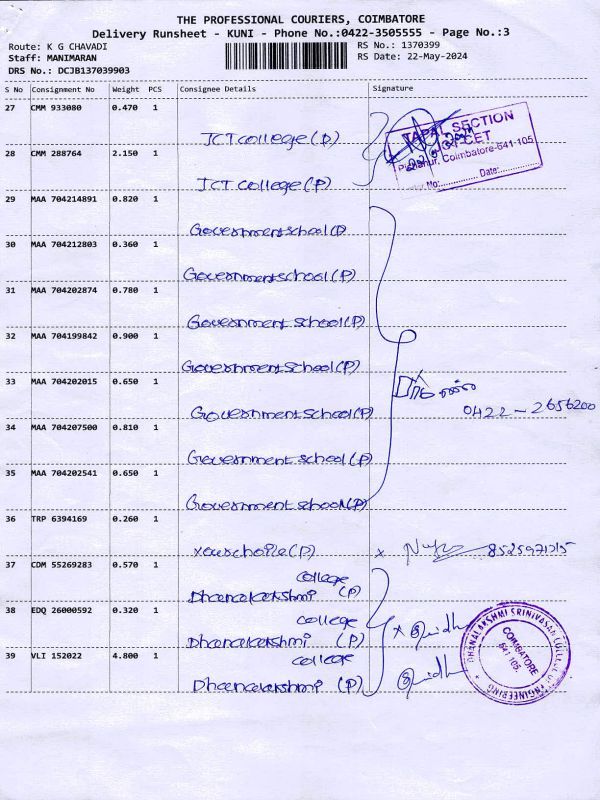 THE PROFESSIONAL COURIERS, COIMBATORE
Delivery Runsheet - KUNI - Phone No.:0422-3505555 - Page No.:3
Route: K G CHAVADI
RS No.: 1370399
Staff: MANIMARAN
RS Date: 22-May-2024
DRS No.: DCJB137039903
S No Consignment No Weight PCS Consignee Details Signature
27 CMM 933080 0.470 1
JCT college (P)
TAPAL SECTION
JCT-CET
Pichanur, Coimbatore-641-105
No:............ Date:............
28 CMM 288764 2.150 1
JCT college (P)
29 MAA 704214891 0.820 1
Government school (P)
30 MAA 704212803 0.360 1
Government school (P)
31 MAA 704202874 0.780 1
Government school (P)
32 MAA 704199842 0.900 1
Government school (P)
33 MAA 704202015 0.650 1
Government school (P)
0422 - 2656200
34 MAA 704207500 0.810 1
Government school (P)
35 MAA 704202541 0.650 1
Government school (P)
36 TRP 6394169 0.260 1
(P) x
37 COM 55269283 0.570 1
college
Dhanalakshmi (P)
38 EDQ 26000592 0.320 1
college
Dhanalakshmi (P)
x Sridh
39 VLI 152022 4.800 1
college
Dhanalakshmi (P)
Sridh
DHANALAKSHMI SRINIVASAN COLLEGE OF ENGINEERING
COIMBATORE
641 105.